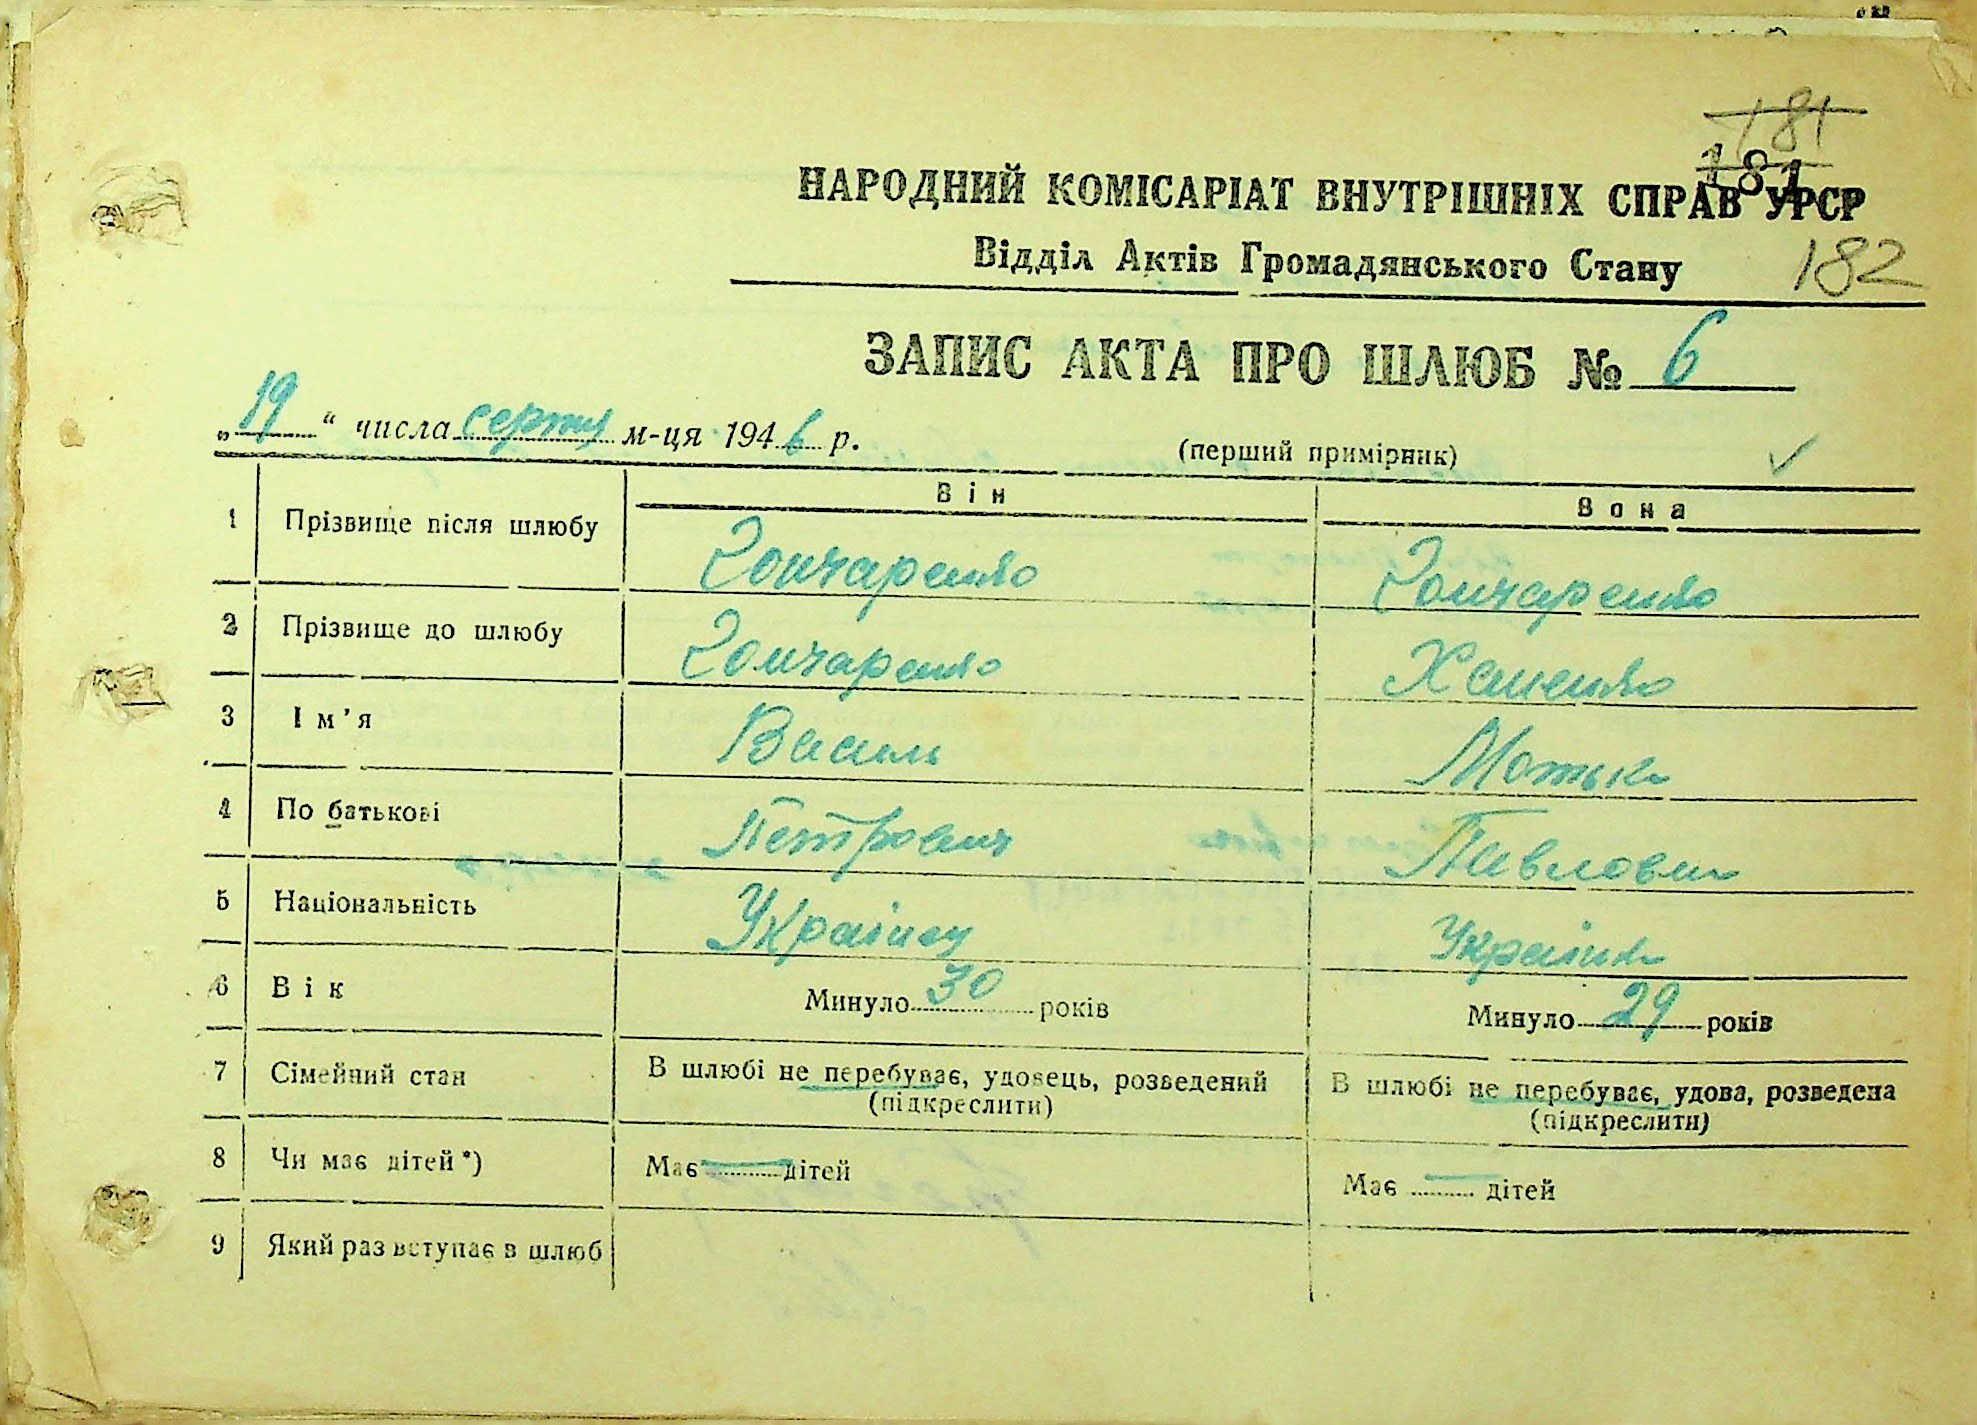 181
181
НАРОДНИЙ КОМІСАРІАТ ВНУТРІШНІХ СПРАВ УРСР
Відділ Актів Громадянського Стану 182
ЗАПИС АКТА ПРО ШЛЮБ № 6
„19“ числа серпня м-ця 1946 р.
(перший примірник)
Він Вона
1 Прізвище після шлюбу Гончаренко Гончаренко
2 Прізвище до шлюбу Гончаренко Ханенко
3 Ім’я Василь Мотька
4 По батькові Петрович Павловна
5 Національність Українец Українка
6 Вік Минуло 30 років Минуло 29 років
7 Сімейний стан В шлюбі не перебуває, удовець, розведений В шлюбі не перебуває, удова, розведена
(підкреслити) (підкреслити)
8 Чи має дітей*) Має — дітей Має — дітей
9 Який раз вступає в шлюб